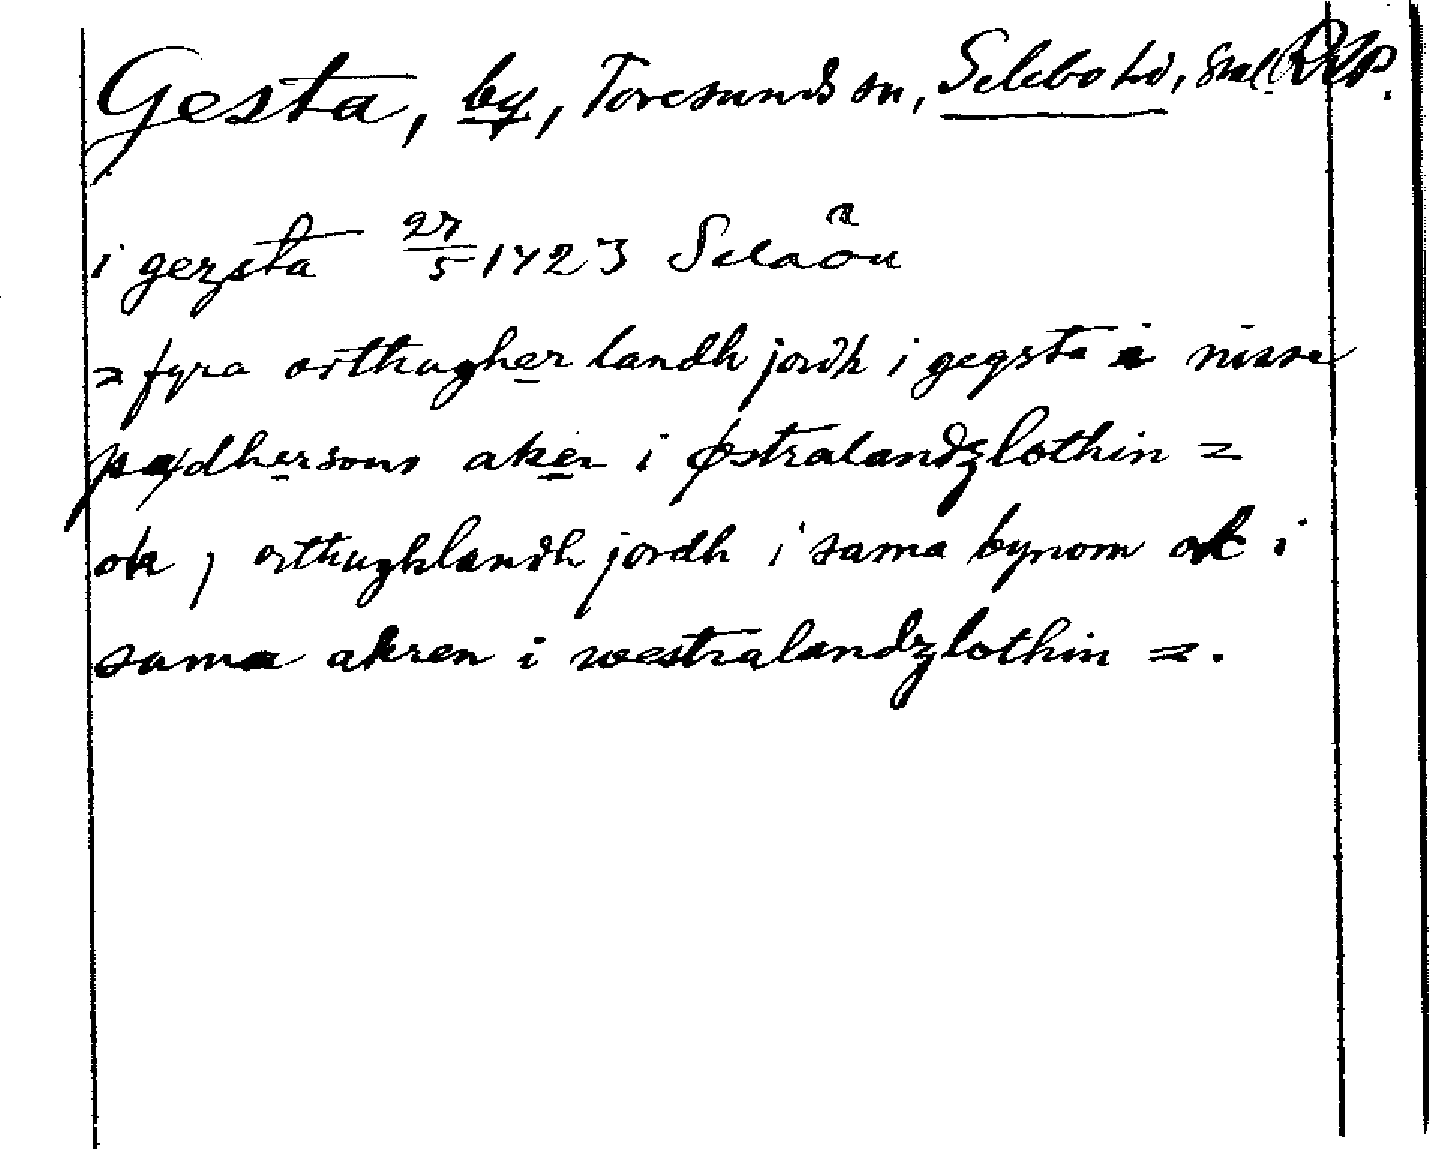 Gesta, by, Toresunds sn, Selebo hd, Sdl. RAp.
i gezsta 27/5 1423 Selaön a
= fyra örthugher landh jordh i gegsta i nisse
pædhersons aker i østralandzlothin =
ok j örthughlandh jordh i sama bynom ok i
sama akren i westralandzlothin =.